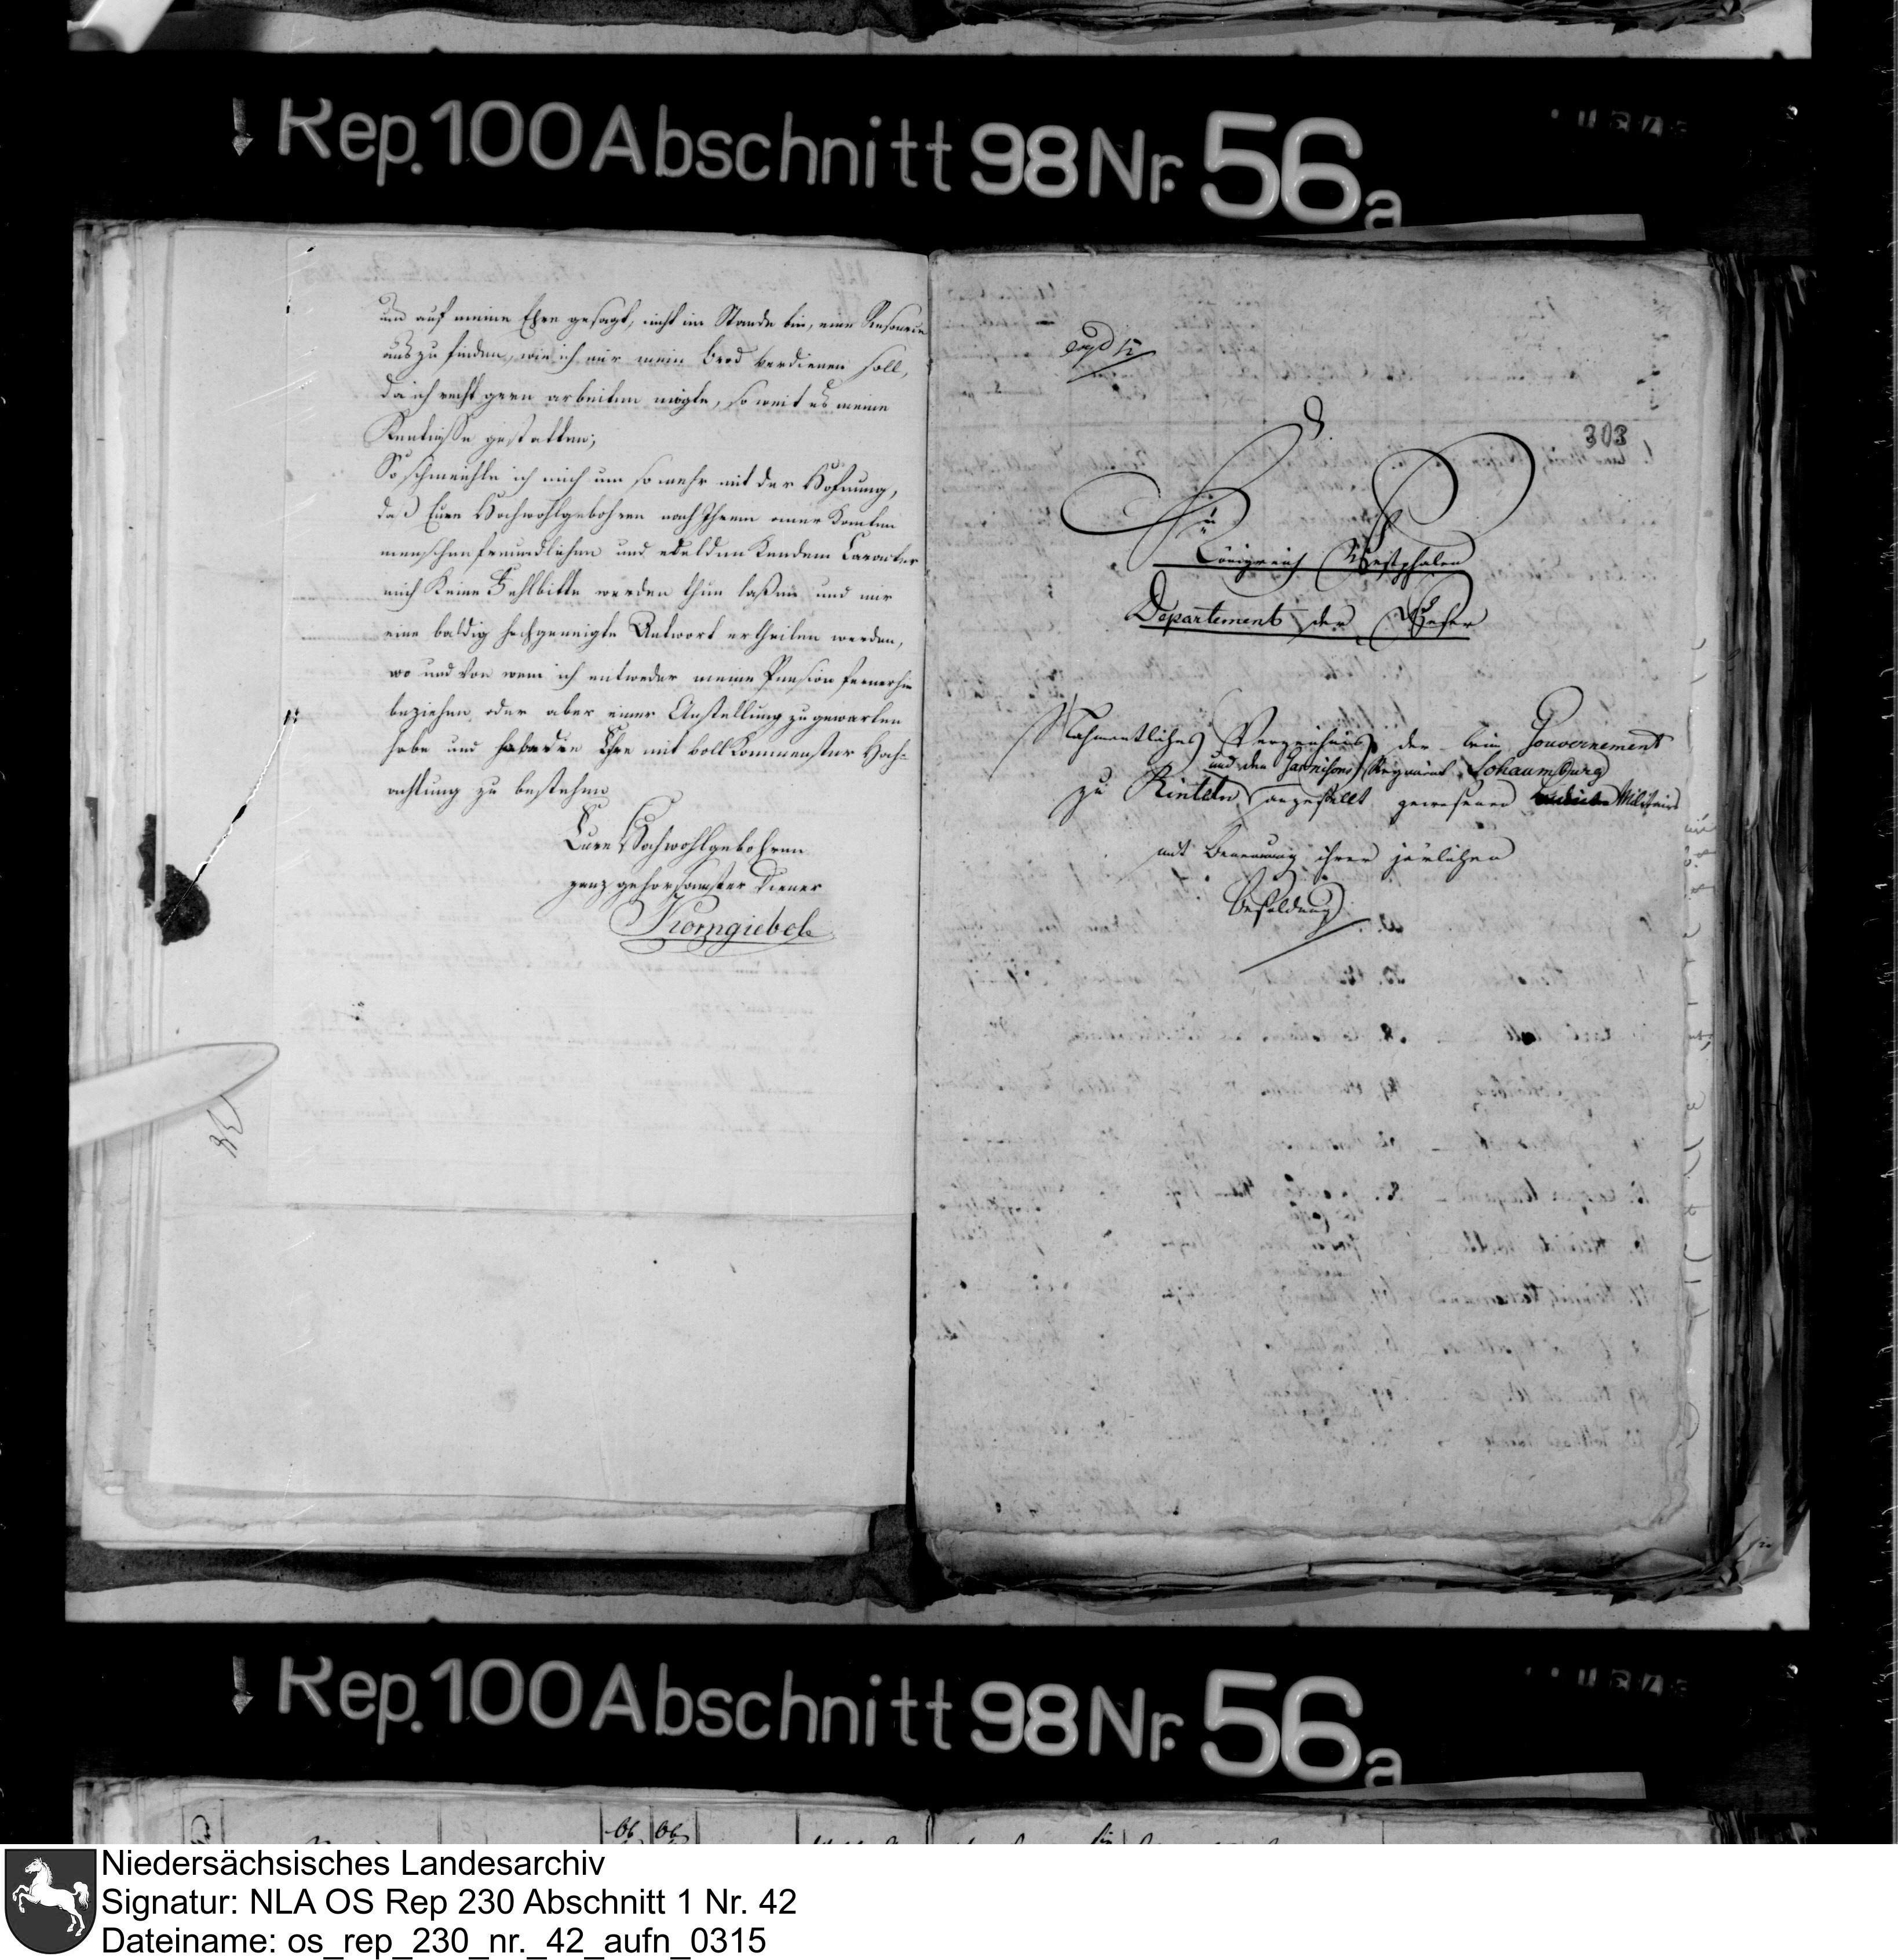 Rep. 100 Abschnitt 98 Nr. 56a
und auf meine Ehre gesagt, nicht im Stande bin, eine Resource
auszu finden, wie ich mir mein Brod verdienen soll,
da ich recht gern arbeiten mögte, so weit es meine
Kentnisse gestatten;
So schmeichle ich mich um so mehr mit der Hofnung,
daß Eure Hochwohlgebohren nach Ihrem
menschenfreundlichen und Caracter
mich Keine Fehlbitte werden thun laßen und mir
eine baldig hochgeneigte Antwort ertheilen werden,
wo und von wem ich entweder meine Pension fernerhin
beziehen oder aber einer Anstellung zu gewarten
habe und habe die Ehre mit vollkommenster Hoch-
achtung zu bestehen
Eure Hochwohlgebohren
ganz gehorsamster Diener
Korngiebel
303
Königreich Westphalen
Departement der Weser
Nahmentliches Verzeichniß der beim Gouvernement
und den Garnisons Regiment Schaumburg
zu Rinteln angestellt gewesenen Militairs
mit Benennung ihrer järlichen
Besoldung
Rep. 100 Abschnitt 98 Nr. 56a
Niedersächsisches Landesarchiv
Signatur: NLA OS Rep 230 Abschnitt 1 Nr. 42
Dateiname: os_rep_230_nr._42_aufn_0315